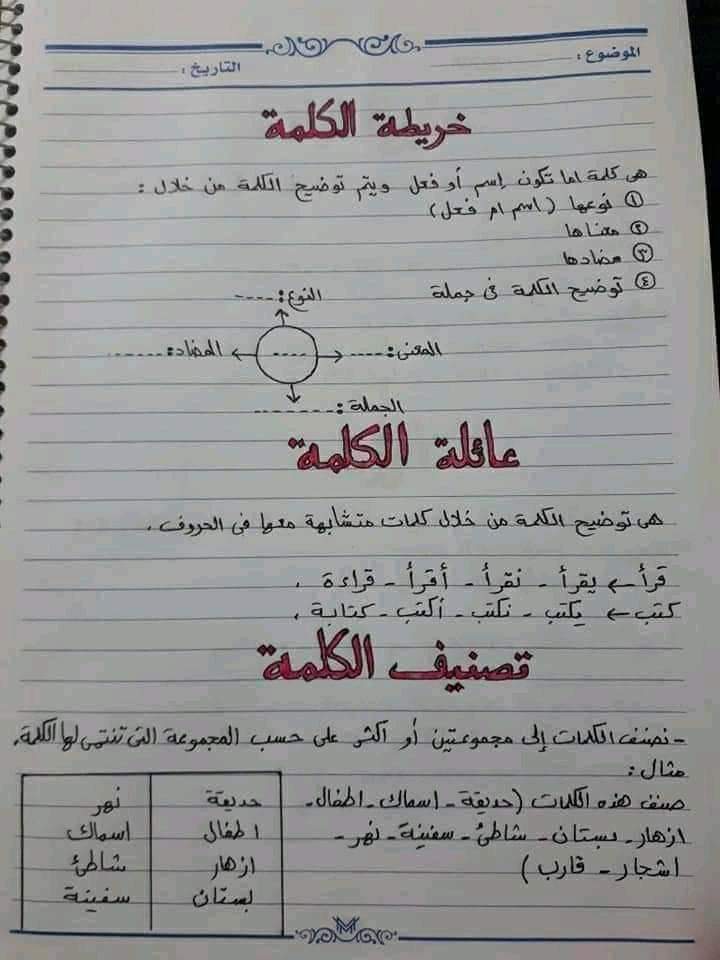 الموضوع :
التاريخ :
خريطة الكلمة
هى كلمة اما تكون إسم أو فعل ويتم توضيح الكلمة من خلال :
١ نوعها ( اسم ام فعل )
٢ معناها
٣ مضادها
٤ توضيح الكلمة فى جملة
النوع : ----
المعنى : ---- ---- المضاد : ------
الجملة : --------
عائلة الكلمة
هى توضيح الكلمة من خلال كلمات متشابهة معها فى الحروف .
قرأ ← يقرأ - نقرأ - أقرأ - قراءة .
كتب ← يكتب - نكتب - أكتب - كتابة .
تصنيف الكلمة
- نصنف الكلمات إلى مجموعتين أو أكثر على حسب المجموعة التى تنتمى لها الكلمة .
مثال :
صنف هذه الكلمات ( حديقة - اسماك - اطفال -
ازهار - بستان - شاطئ - سفينة - نهر -
اشجار - قارب )
حديقة نهر
اطفال اسماك
ازهار شاطئ
بستان سفينة